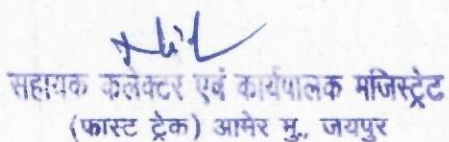 सहायक कलेक्टर एवं कार्यपालक मजिस्ट्रेट
(फास्ट ट्रेक) आमेर मु., जयपुर